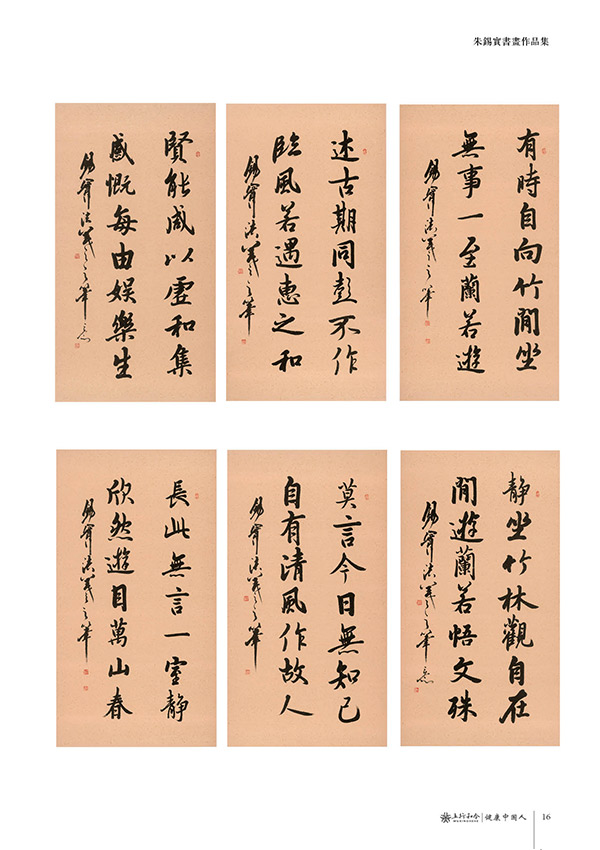 朱錫實書畫作品集
有時自向竹間坐
無事一至蘭若遊
錫實法羲之之筆
述古期同彭不作
臨風若遇惠之和
錫實法羲之之筆
賢能咸以虛和集
感慨每由娛樂生
錫實法羲之之筆意
靜坐竹林觀自在
閒遊蘭若悟文殊
錫實法羲之之筆意
莫言今日無知己
自有清風作故人
錫實法羲之之筆
長此無言一室靜
欣然遊目萬山春
錫實法羲之之筆
五行和合 健康中国人 16
WUXINGHEHE